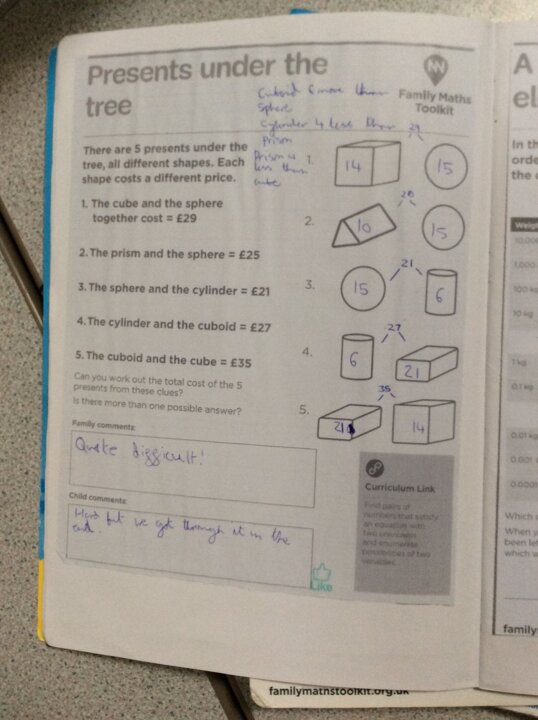 Presents under the
tree
Family Maths
Toolkit
Cuboid 6 more than
Sphere
Cylinder 4 less than
Prism
Prism 4
less than
cube
There are 5 presents under the
tree, all different shapes. Each
shape costs a different price.
1. The cube and the sphere
together cost = £29
2. The prism and the sphere = £25
3. The sphere and the cylinder = £21
4. The cylinder and the cuboid = £27
5. The cuboid and the cube = £35
Can you work out the total cost of the 5
presents from these clues?
Is there more than one possible answer?
29
1. 14 15
2. 10 15
21
3. 15 6
27
4. 6 21
35
5. 21 14
Family comments:
Quite difficult!
Child comments:
Hard but we got through it in the
end.
Like
Curriculum Link
Find pairs of
numbers that satisfy
an equation with
two unknowns
and enumerate
possibilities of two
variables.
familymathstoolkit.org.uk
A
el
In th
orde
the
Weigh
10,000
1,000
100 kg
10 kg
1 kg
0.1 kg
0.01 kg
0.001
0.0001
Which
When y
been lef
which w
family